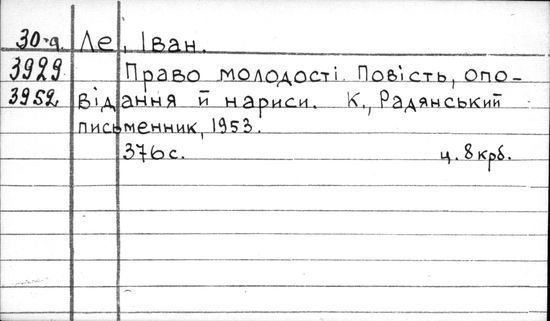 30-д. Ле, Іван.
3929 Право молодості. Повість, опо-
3952 відання й нариси. К., Радянський
письменник, 1953.
376 с. ц. 8 крб.